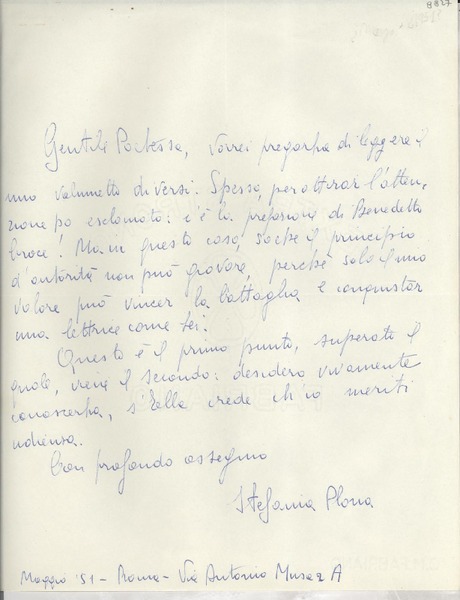 8827
Gentile Poetessa, Vorrei pregarha di leggere il
mio volumetto di versi. Spesso, per attirar l'atten,
zione ho esclamato: c'è la prefazione di Benedetto
Croce! Ma in questo caso, so che il principio
d'autorità non può giovare, perchè solo il mio
valore può vincer la battaglia e conquistar
una lettrice come Lei.
Questo è il primo punto, superato il
quale, viene il secondo: desidero vivamente
conoscerha, s'Ella crede ch'io meriti
udienza.
Con profondo ossequio
Stefania Plona
Maggio '51 - Roma - Via Antonio Musa 2 A